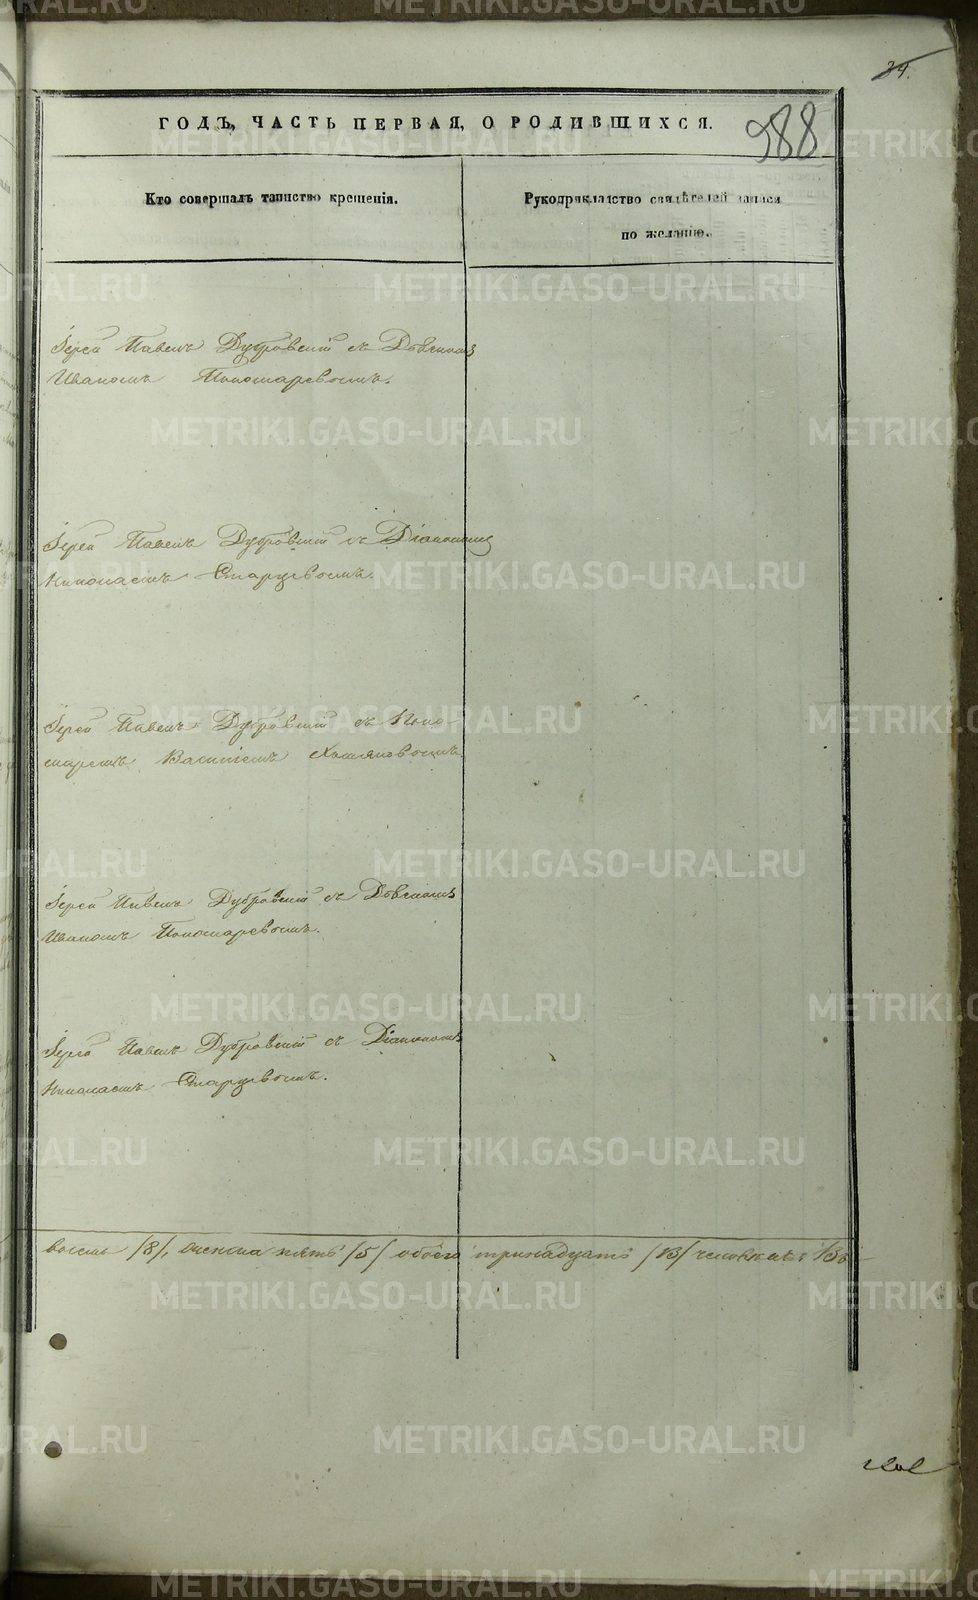 34.
ГОДЪ, ЧАСТЬ ПЕРВАЯ, О РОДИВШИХСЯ.
988
Кто совершалъ таинство крещенія.
Рукоприкладство свидѣтелей записи
по желанію.
Іерей Павелъ Дубровскій съ Дьячкомъ
Иваномъ Пономаревымъ.
Іерей Павелъ Дубровскій съ Діакономъ
Николаемъ Старцевымъ.
Іерей Павелъ Дубровскій съ Поно-
маремъ Василіемъ Хомяковымъ
Іерей Павелъ Дубровскій съ Дьячкомъ
Иваномъ Пономаревымъ.
Іерей Павелъ Дубровскій съ Діакономъ
Николаемъ Старцевымъ.
восемь /8/, женска пять /5/ обоего тринадцать /13/ человѣкъ:
METRIKI.GASO-URAL.RU